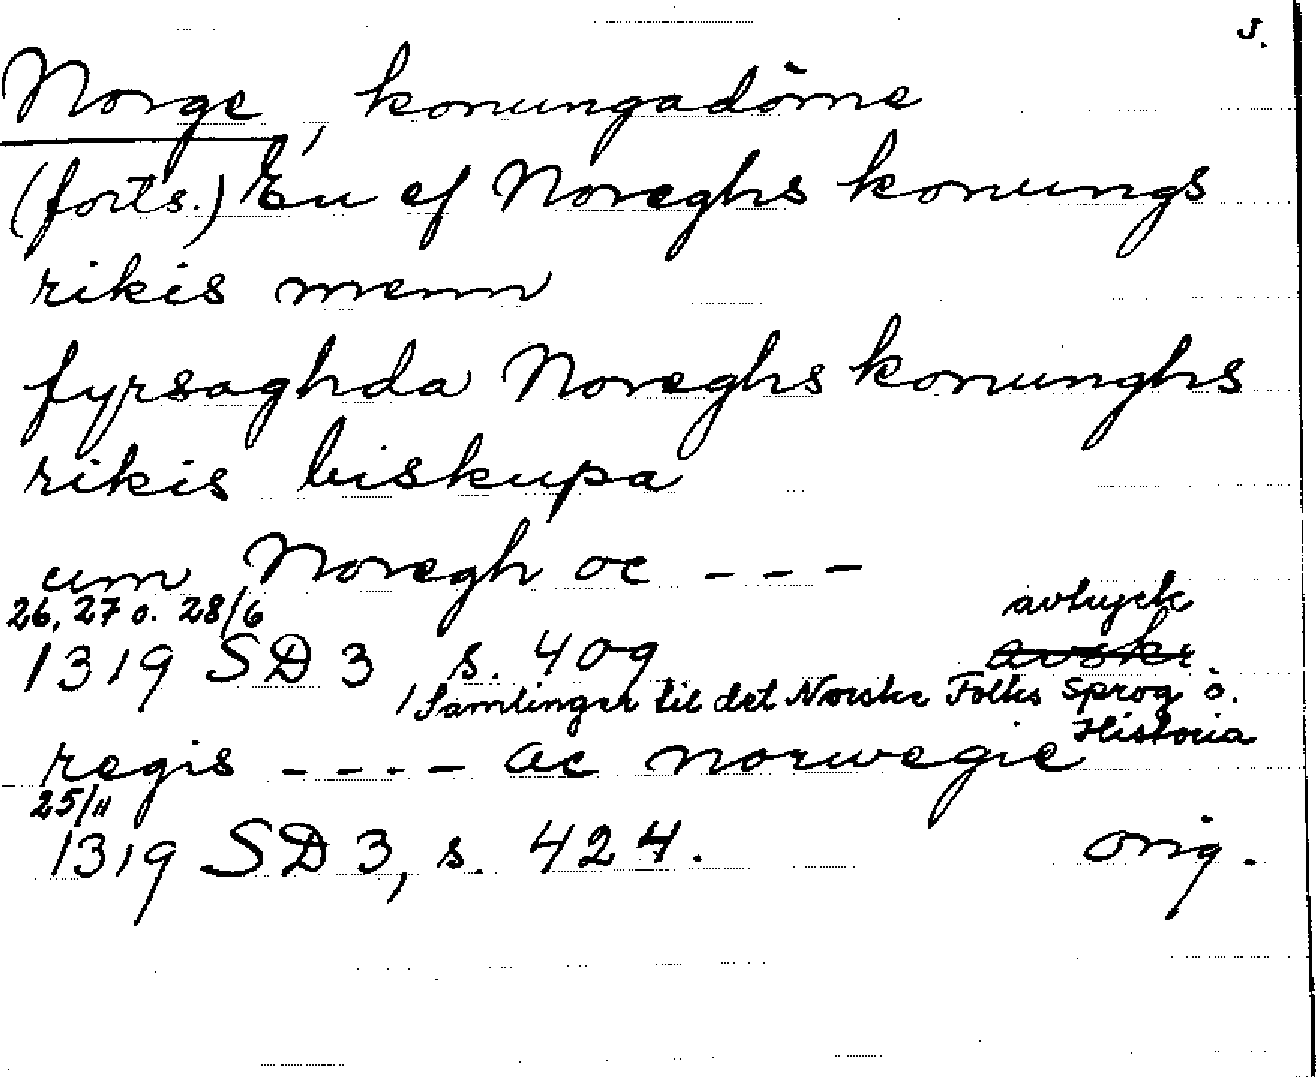 5.
Norge, konungadöme
(forts.) En ef Noreghs konungs
rikis menn
fyrsaghda Noreghs konunghs
rikis biskupa
um Noregh oc - - -
26, 27 o. 28/6 avtryck
1319 SD 3 s. 409 avskr.
/Samlinger til det Norske Folks Sprog o.
Historia
regis - - . - ac norwegie
25/11
1319 SD 3, s. 424. orig.